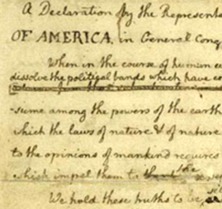 A Declaration by the Represent
OF AMERICA, in General Cong
When in the course of human ev
dissolve the political bands which have co
-sume among the powers of the earth
which the laws of nature & of nature
to the opinions of mankind requires
which impel them to the
We hold these truths to be